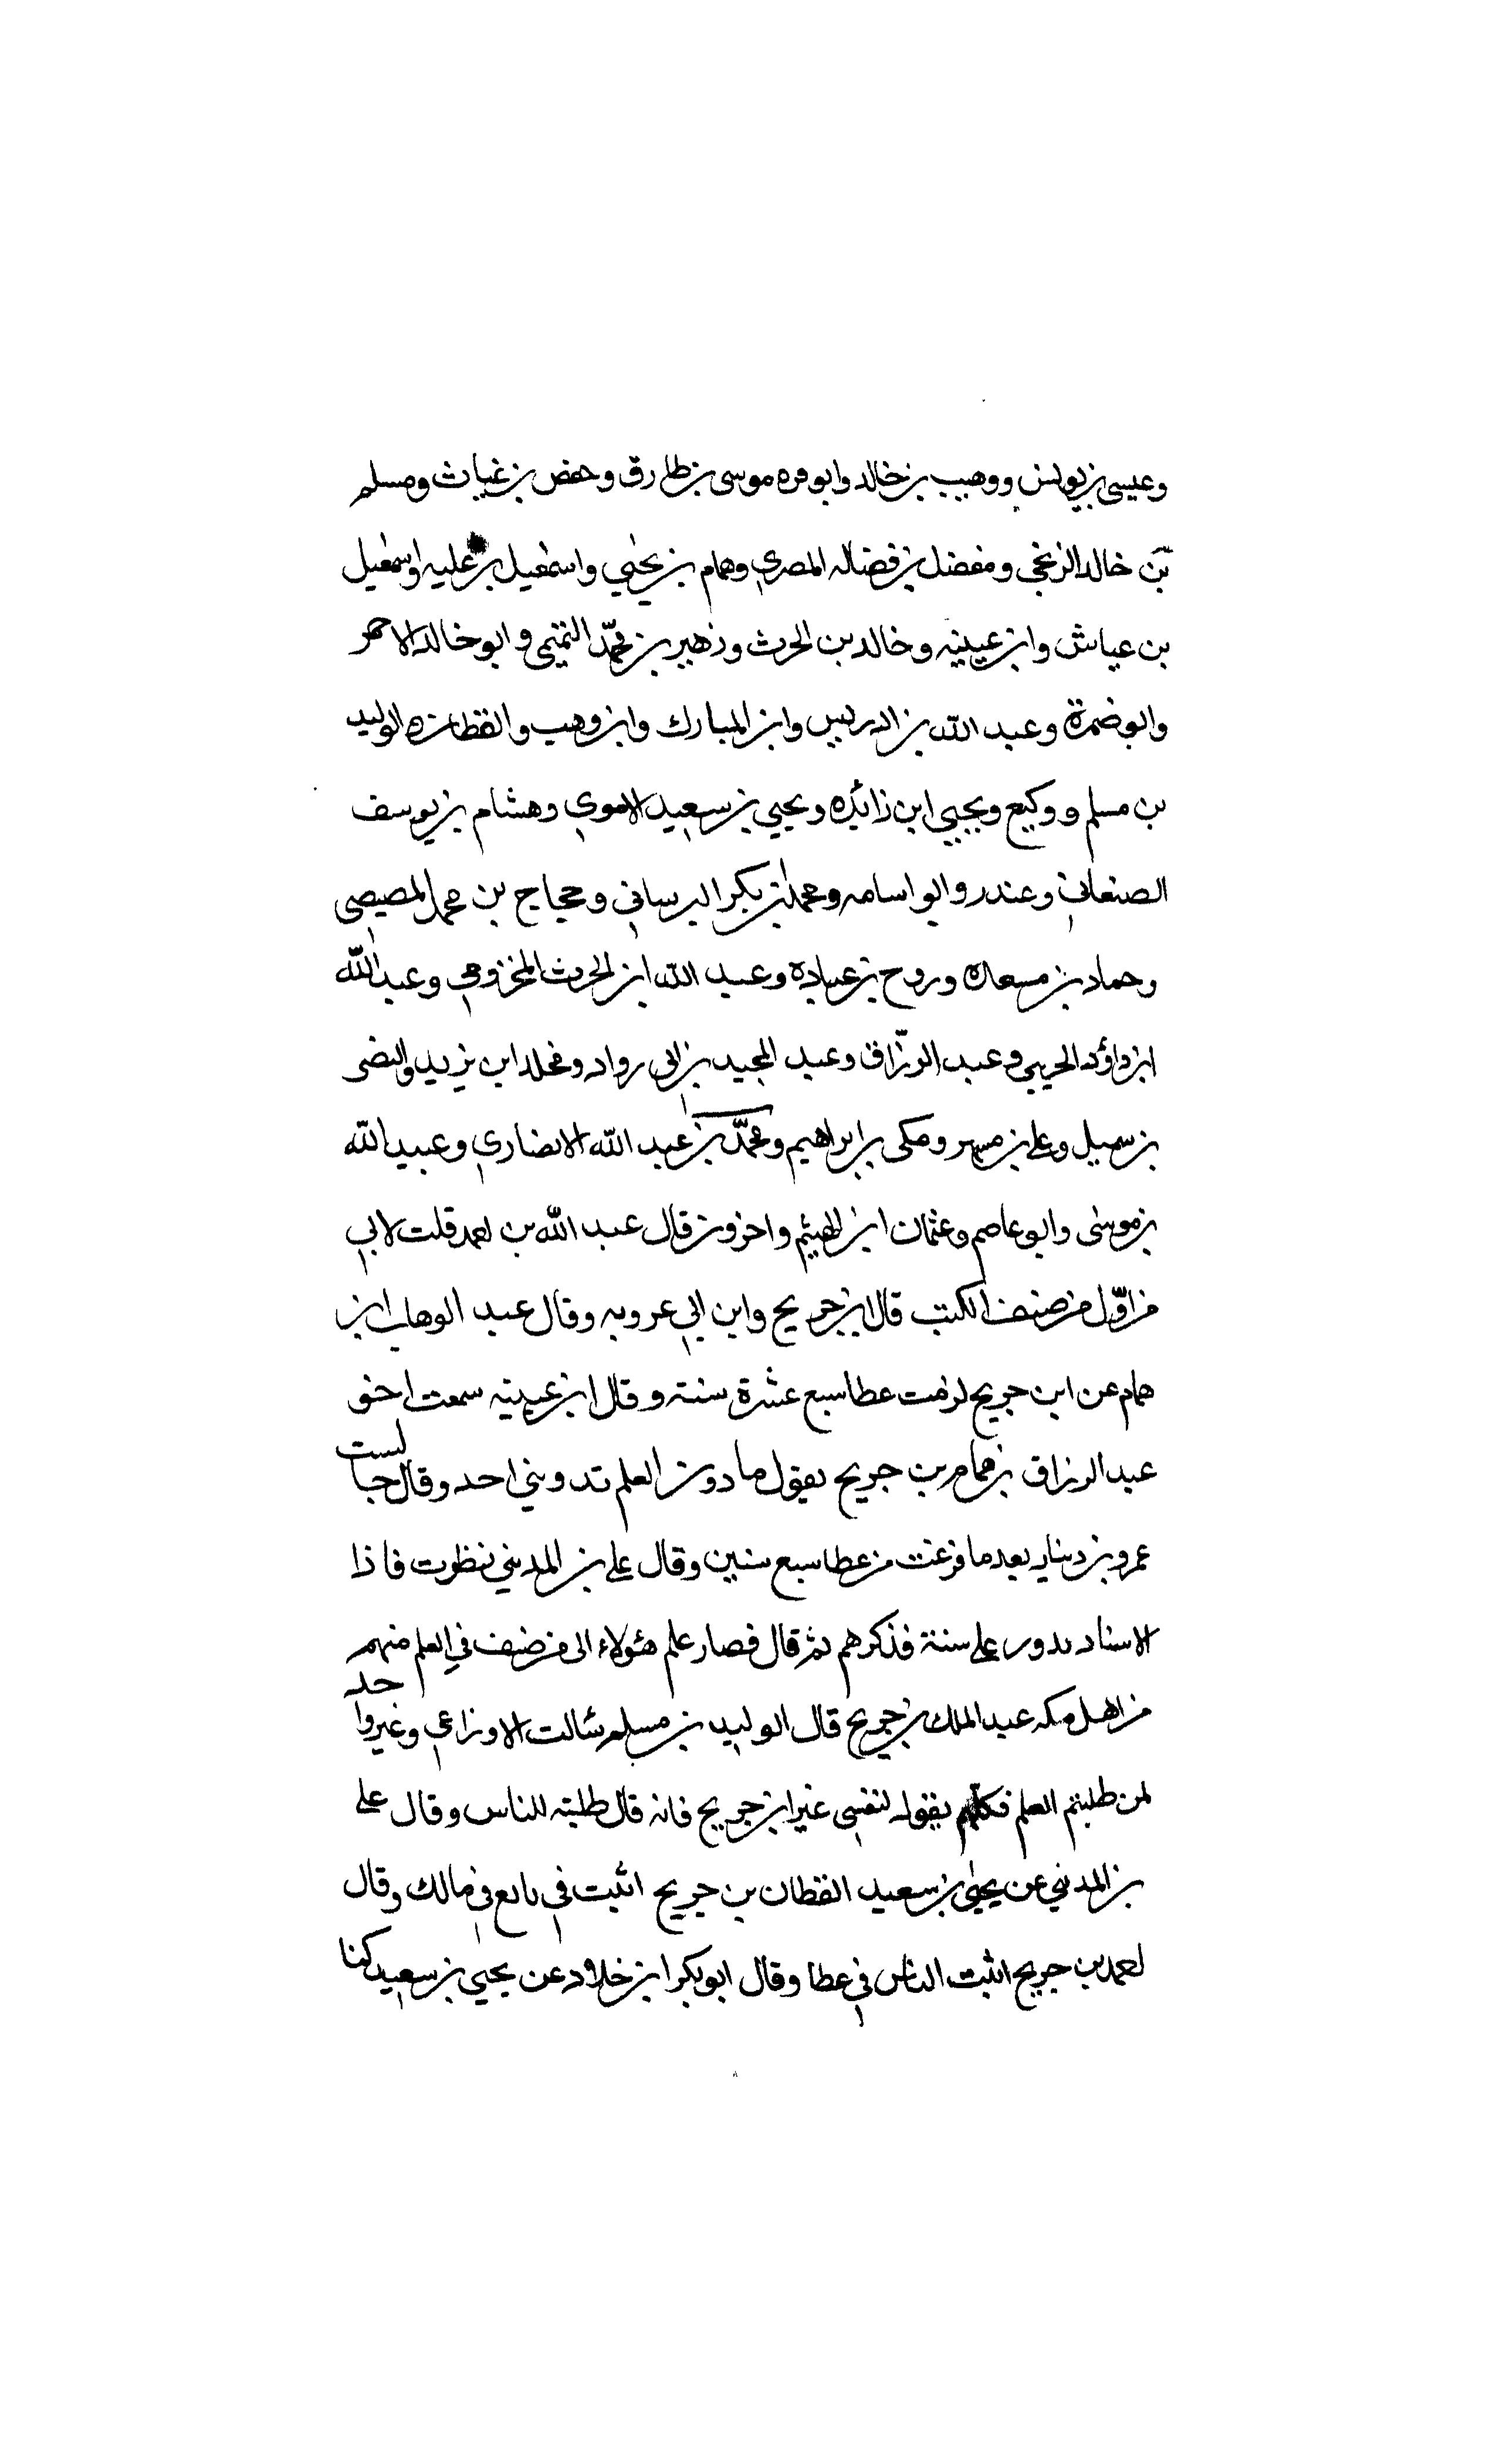 وعيسى بن يونس ووهيب بن خالد وابو قره موسى بن طارق وحفص بن غياث ومسلم
بن خالد الزنجي ومفضل بن فضاله المصري وهمام بن يحيي واسمعيل بن عليه واسمعيل
بن عياش وابن عيينه وخالد بن الحرث وزهير بن محمد التميمي وابو خالد الاحمر
وابو ضمرة وعبد الله بن ادريس وابن المبارك وابن وهب والقطان والوليد
بن مسلم ووكيع ويحيي ابن زائده ويحيي بن سعيد الاموي وهشام بن يوسف
الصنعاني وغندر وابو اسامه ومحمد بن بكر البرساني وحجاج بن محمد المصيصي
وحماد بن مسعده وروح بن عبادة وعبد الله ابن الحرث المخزومي وعبد الله
ابن داؤد الحريبي وعبد الرزاق وعبد المجيد بن ابي رواد ومخلد ابن يزيد والنضر
بن سميل وعلي بن مسهر ومكي بن ابراهيم ومحمد بن عبد الله الانصاري وعبيد الله
بن موسى وابو عاصم وعثمان ابن الهيثم واخرون قال عبد الله بن احمد قلت لابي
من اول من صنف الكتب قال ابن جريح وابن ابي عروبه وقال عبد الوهاب ابن
همام عن ابن جريح لزمت عطا سبع عشرة سنة وقال ابن عيينه سمعت اخو
عبد الرزاق بن همام بن جريح يقول ما دون العلم تدويني احد وقال جالست
عمرو بن دينار بعد ما فرغت من عطا سبع سنين وقال علي بن المديني نظرت فاذا
الاسناد يدور على ستة فذكرهم ثم قال فصار علم هئولاء الى من صنف في العلم منهم
من اهل مكه عبد الملك بن جريح قال الوليد بن مسلم سالت الاوزاعي وغير واحد
لمن طلبتم العلم فكلهم يقول لنفسي غير ابن جريح فانه قال طلبته للناس وقال علي
بن المديني عن يحيى بن سعيد القطان بن جريح اثبت في نافع من مالك وقال
احمد بن جريح اثبت الناس في عطا وقال ابو بكر ابن خلاد عن يحيي بن سعيد كنا